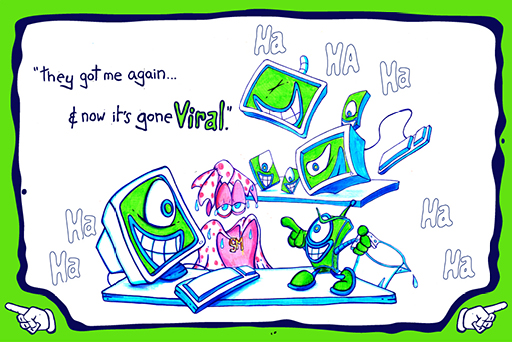 "they got me again...
& now it's gone Viral."
Ha
HA
Ha
Ha
Ha
Ha
Ha
SM